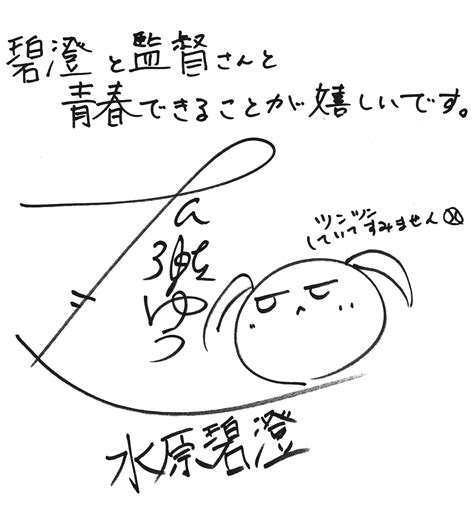 碧澄と監督さんと
青春できることが嬉しいです。
ツンツン
していてすみません
ゆう
水原碧澄